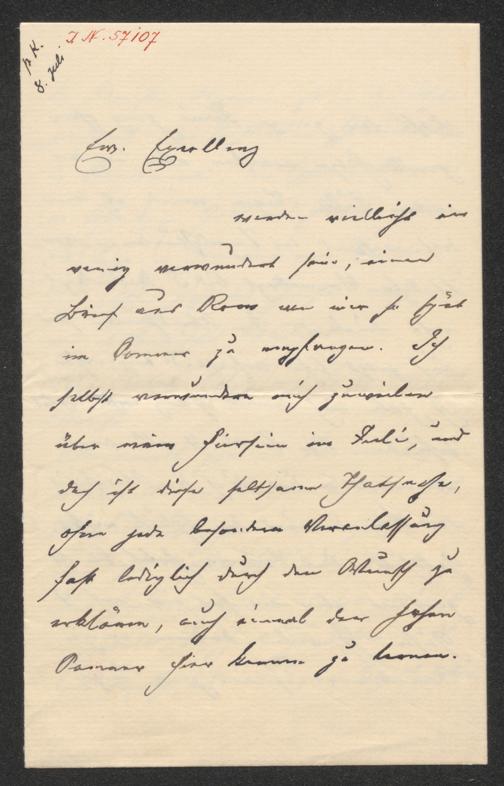 I.N. 57107
p. K.
8. Juli
Ew. Excellenz
werden vielleicht ein
wenig verwundert sein, einen
Brief aus Rom von mir so spät
im Sommer zu empfangen. Ich
selbst verwundere mich zuweilen
über mein Hiersein im Juli, und
doch ist diese seltsame Thatsache,
ohne jede besondere Veranlassung
fast lediglich durch den Wunsch zu
erklären, auch einmal den hohen
Sommer hier kennen zu lernen.